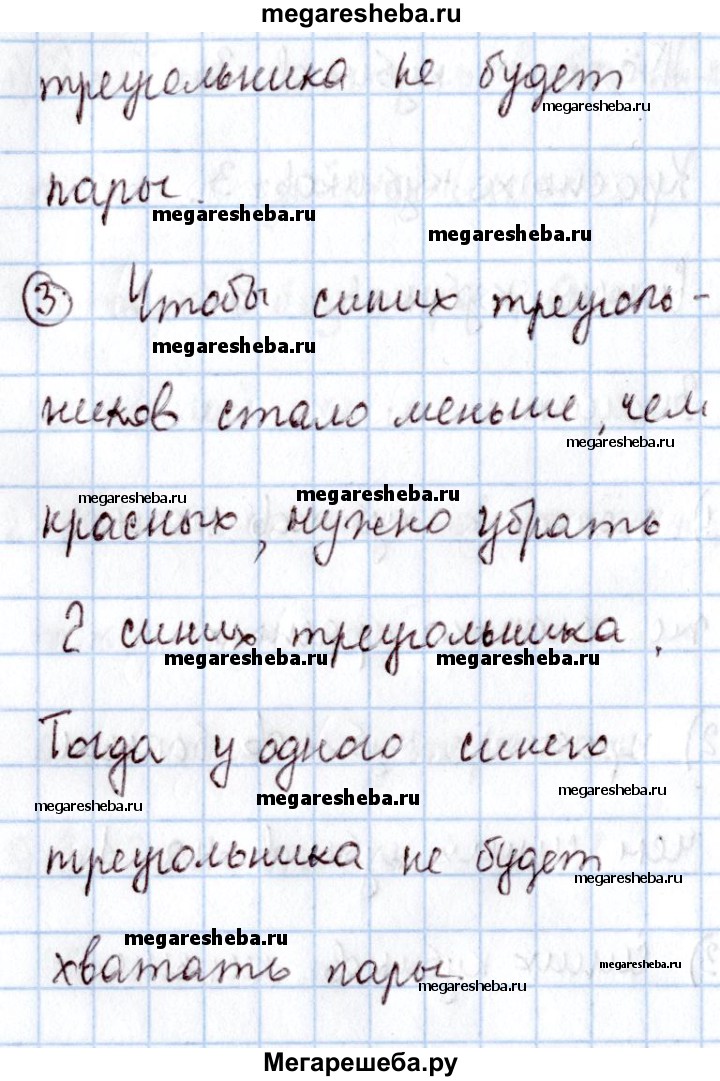 megaresheba.ru
треугольника не будет
megaresheba.ru
пары.
megaresheba.ru
megaresheba.ru
③ Чтобы синих треуголь-
megaresheba.ru
ников стало меньше, чем
megaresheba.ru
megaresheba.ru
megaresheba.ru
красных, нужно убрать
2 синих треугольника.
megaresheba.ru
megaresheba.ru
Тогда у одного синего
megaresheba.ru
megaresheba.ru
megaresheba.ru
треугольника не будет
megaresheba.ru
megaresheba.ru
хватать пары.
megaresheba.ru
megaresheba.ru
Мегарешеба.ру